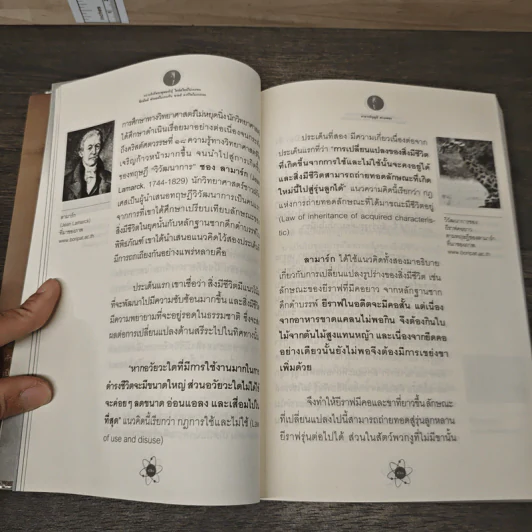 การศึกษาทางวิทยาศาสตร์ไม่หยุดนิ่ง นักวิทยาศาสตร์
ได้ศึกษาดำเนินเรื่อยมาอย่างต่อเนื่องจนกระ
ถึงคริสต์ศตวรรษที่ ๑๘ ความรู้ทางวิทยาศาสตร์
เจริญก้าวหน้ามากขึ้น จนนำไปสู่การเกิดขึ้น
ของทฤษฎี "วิวัฒนาการ" ของ ลามาร์ก
Lamarck, 1744-1829) นักวิทยาศาสตร์ชาวฝรั่ง
เศสเป็นผู้นำเสนอทฤษฎีวิวัฒนาการเป็นคนแรก
จากการที่เขาได้ศึกษาเปรียบเทียบลักษณะของ
สิ่งมีชีวิตในยุคนั้นกับหลักฐานซากดึกดำบรรพ์
พิพิธภัณฑ์ เขาได้นำเสนอแนวคิดไว้สองประเด็น
มีการถกเถียงกันอย่างแพร่หลายคือ
ลามาร์ก
(Jean Lamarck)
ที่มาของภาพ
www.bonpai.ac.th
ประเด็นแรก เขาเชื่อว่า สิ่งมีชีวิตมีแนวโน้ม
ที่จะพัฒนาไปมีความซับซ้อนมากขึ้น และสิ่งมีชีวิต
มีความพยายามที่จะอยู่รอดในธรรมชาติ ซึ่งจะ
ผลต่อการเปลี่ยนแปลงด้านสรีระไปในทิศทางนั้น
"หากอวัยวะใดที่มีการใช้งานมากในการ
ดำรงชีวิตจะมีขนาดใหญ่ ส่วนอวัยวะใดไม่ได้ใช้
จะค่อยๆ ลดขนาด อ่อนแอลง และเสื่อมไปใน
ที่สุด" แนวคิดนี้เรียกว่า กฎการใช้และไม่ใช้ (Law
of use and disuse)
ประเด็นที่สอง มีความเกี่ยวเนื่องต่อจาก
ประเด็นแรกที่ว่า "การเปลี่ยนแปลงของสิ่งมีชีวิต
ที่เกิดขึ้นจากการใช้และไม่ใช้นั้นจะคงอยู่ได้
และสิ่งมีชีวิตสามารถถ่ายทอดลักษณะที่เกิด
ใหม่นี้ไปสู่รุ่นลูกได้" แนวความคิดนี้เรียกว่า กฎ
แห่งการถ่ายทอดลักษณะที่ได้มาขณะมีชีวิตอยู่
(Law of inheritance of acquired characteris-
tic)
วิวัฒนาการของ
ยีราฟคอยาว
ตามทฤษฎีของลามาร์ก
ที่มาของภาพ
www.bonpai.ac.th
ลามาร์ก ได้ใช้แนวคิดทั้งสองมาอธิบาย
เกี่ยวกับการเปลี่ยนแปลงรูปร่างของสิ่งมีชีวิต เช่น
ลักษณะของยีราฟที่มีคอยาว จากหลักฐานซาก
ดึกดำบรรพ์ ยีราฟในอดีตจะมีคอสั้น แต่เนื่อง
จากอาหารขาดแคลนไม่พอกิน จึงต้องกินใบ
ไม้จากต้นไม้สูงแทนหญ้า และเนื่องจากยืดคอ
อย่างเดียวนั้นยังไม่พอจึงต้องมีการเขย่งขา
เพิ่มด้วย
จึงทำให้ยีราฟมีคอและขาที่ยาวขึ้นลักษณะ
ที่เปลี่ยนแปลงไปนี้สามารถถ่ายทอดสู่รุ่นลูกหลาน
ยีราฟรุ่นต่อไปได้ ส่วนในสัตว์พวกงูที่ไม่มีขานั้น